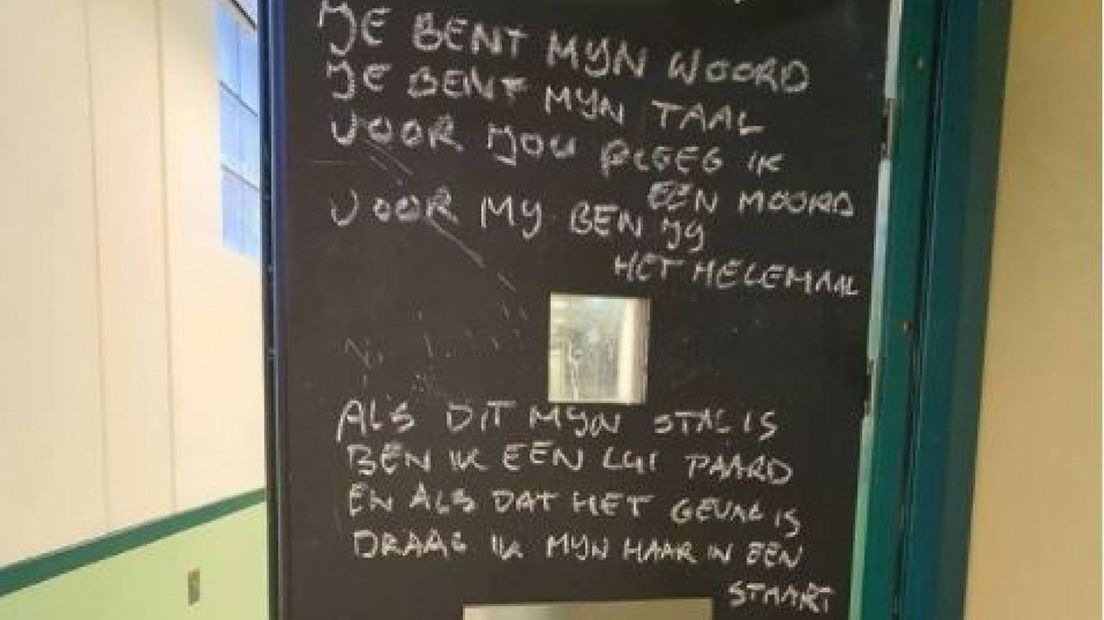 JE BENT MYN WOORD
JE BENT MYN TAAL
VOOR JOU PLEEG IK
EEN MOORD
VOOR MY BEN JY
HET HELEMAAL
ALS DIT MYN STAL IS
BEN IK EEN LUI PAARD
EN ALS DAT HET GEVAL IS
DRAAG IK MYN HAAR IN EEN
STAART